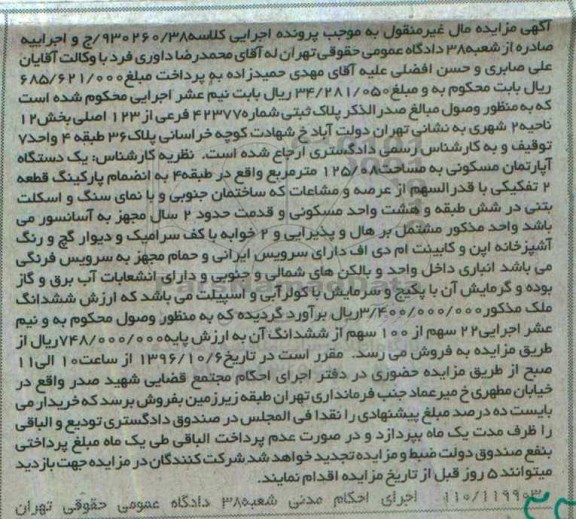 آگهی مزایده مال غیرمنقول به موجب پرونده اجرایی کلاسه۹۳۰۲۶۰/۳۸/ج و اجراییه
صادره از شعبه۳۸ دادگاه عمومی حقوقی تهران له آقای محمدرضا داوری فرد با وکالت آقایان
علی صابری و حسن افضلی علیه آقای مهدی حمیدزاده به پرداخت مبلغ۶۸۵/۶۲۱/۰۰۰
ریال بابت محکوم به و مبلغ۳۴/۲۸۱/۰۵۰ ریال بابت نیم عشر اجرایی محکوم شده است
که به منظور وصول مبالغ صدرالذکر پلاک ثبتی شماره۴۲۳۷۷ فرعی از ۱۲۳ اصلی بخش۱۲
ناحیه۲ شهری به نشانی تهران دولت آباد خ شهادت کوچه خراسانی پلاک۳۶ طبقه ۴ واحد۷
توقیف و به کارشناس رسمی دادگستری ارجاع شده است. نظریه کارشناس: یک دستگاه
آپارتمان مسکونی به مساحت۱۲۵/۰۸ مترمربع واقع در طبقه۴ به انضمام پارکینگ قطعه
۲ تفکیکی با قدرالسهم از عرصه و مشاعات که ساختمان جنوبی و با نمای سنگ و اسکلت
بتنی در شش طبقه و هشت واحد مسکونی و قدمت حدود ۲ سال مجهز به آسانسور می
باشد واحد مذکور مشتمل بر هال و پذیرایی و ۲ خوابه با کف سرامیک و دیوار گچ و رنگ
آشپزخانه اپن و کابینت ام دی اف دارای سرویس ایرانی و حمام مجهز به سرویس فرنگی
می باشد انباری داخل واحد و بالکن های شمالی و جنوبی و دارای انشعابات آب برق و گاز
بوده و گرمایش آن با پکیج و سرمایش با کولرآبی و اسپیلت می باشد که ارزش ششدانگ
ملک مذکور۳/۴۰۰/۰۰۰/۰۰۰ریال برآورد گردیده که به منظور وصول محکوم به و نیم
عشر اجرایی۲۲ سهم از ۱۰۰ سهم از ششدانگ آن به ارزش پایه۷۴۸/۰۰۰/۰۰۰ریال از
طریق مزایده به فروش می رسد. مقرر است در تاریخ۱۳۹۶/۱۰/۶ از ساعت۱۰ الی۱۱
صبح از طریق مزایده حضوری در دفتر اجرای احکام مجتمع قضایی شهید صدر واقع در
خیابان مطهری خ میرعماد جنب فرمانداری تهران طبقه زیرزمین بفروش برسد که خریدار می
بایست ده درصد مبلغ پیشنهادی را نقدا فی المجلس در صندوق دادگستری تودیع و الباقی
را ظرف مدت یک ماه بپردازد و در صورت عدم پرداخت الباقی طی یک ماه مبلغ پرداختی
بنفع صندوق دولت ضبط و مزایده تجدید خواهد شد شرکت کنندگان در مزایده جهت بازدید
میتوانند ۵ روز قبل از تاریخ مزایده اقدام نمایند.
۱۱۰/۱۱۹۹۰۳ اجرای احکام مدنی شعبه۳۸ دادگاه عمومی حقوقی تهران